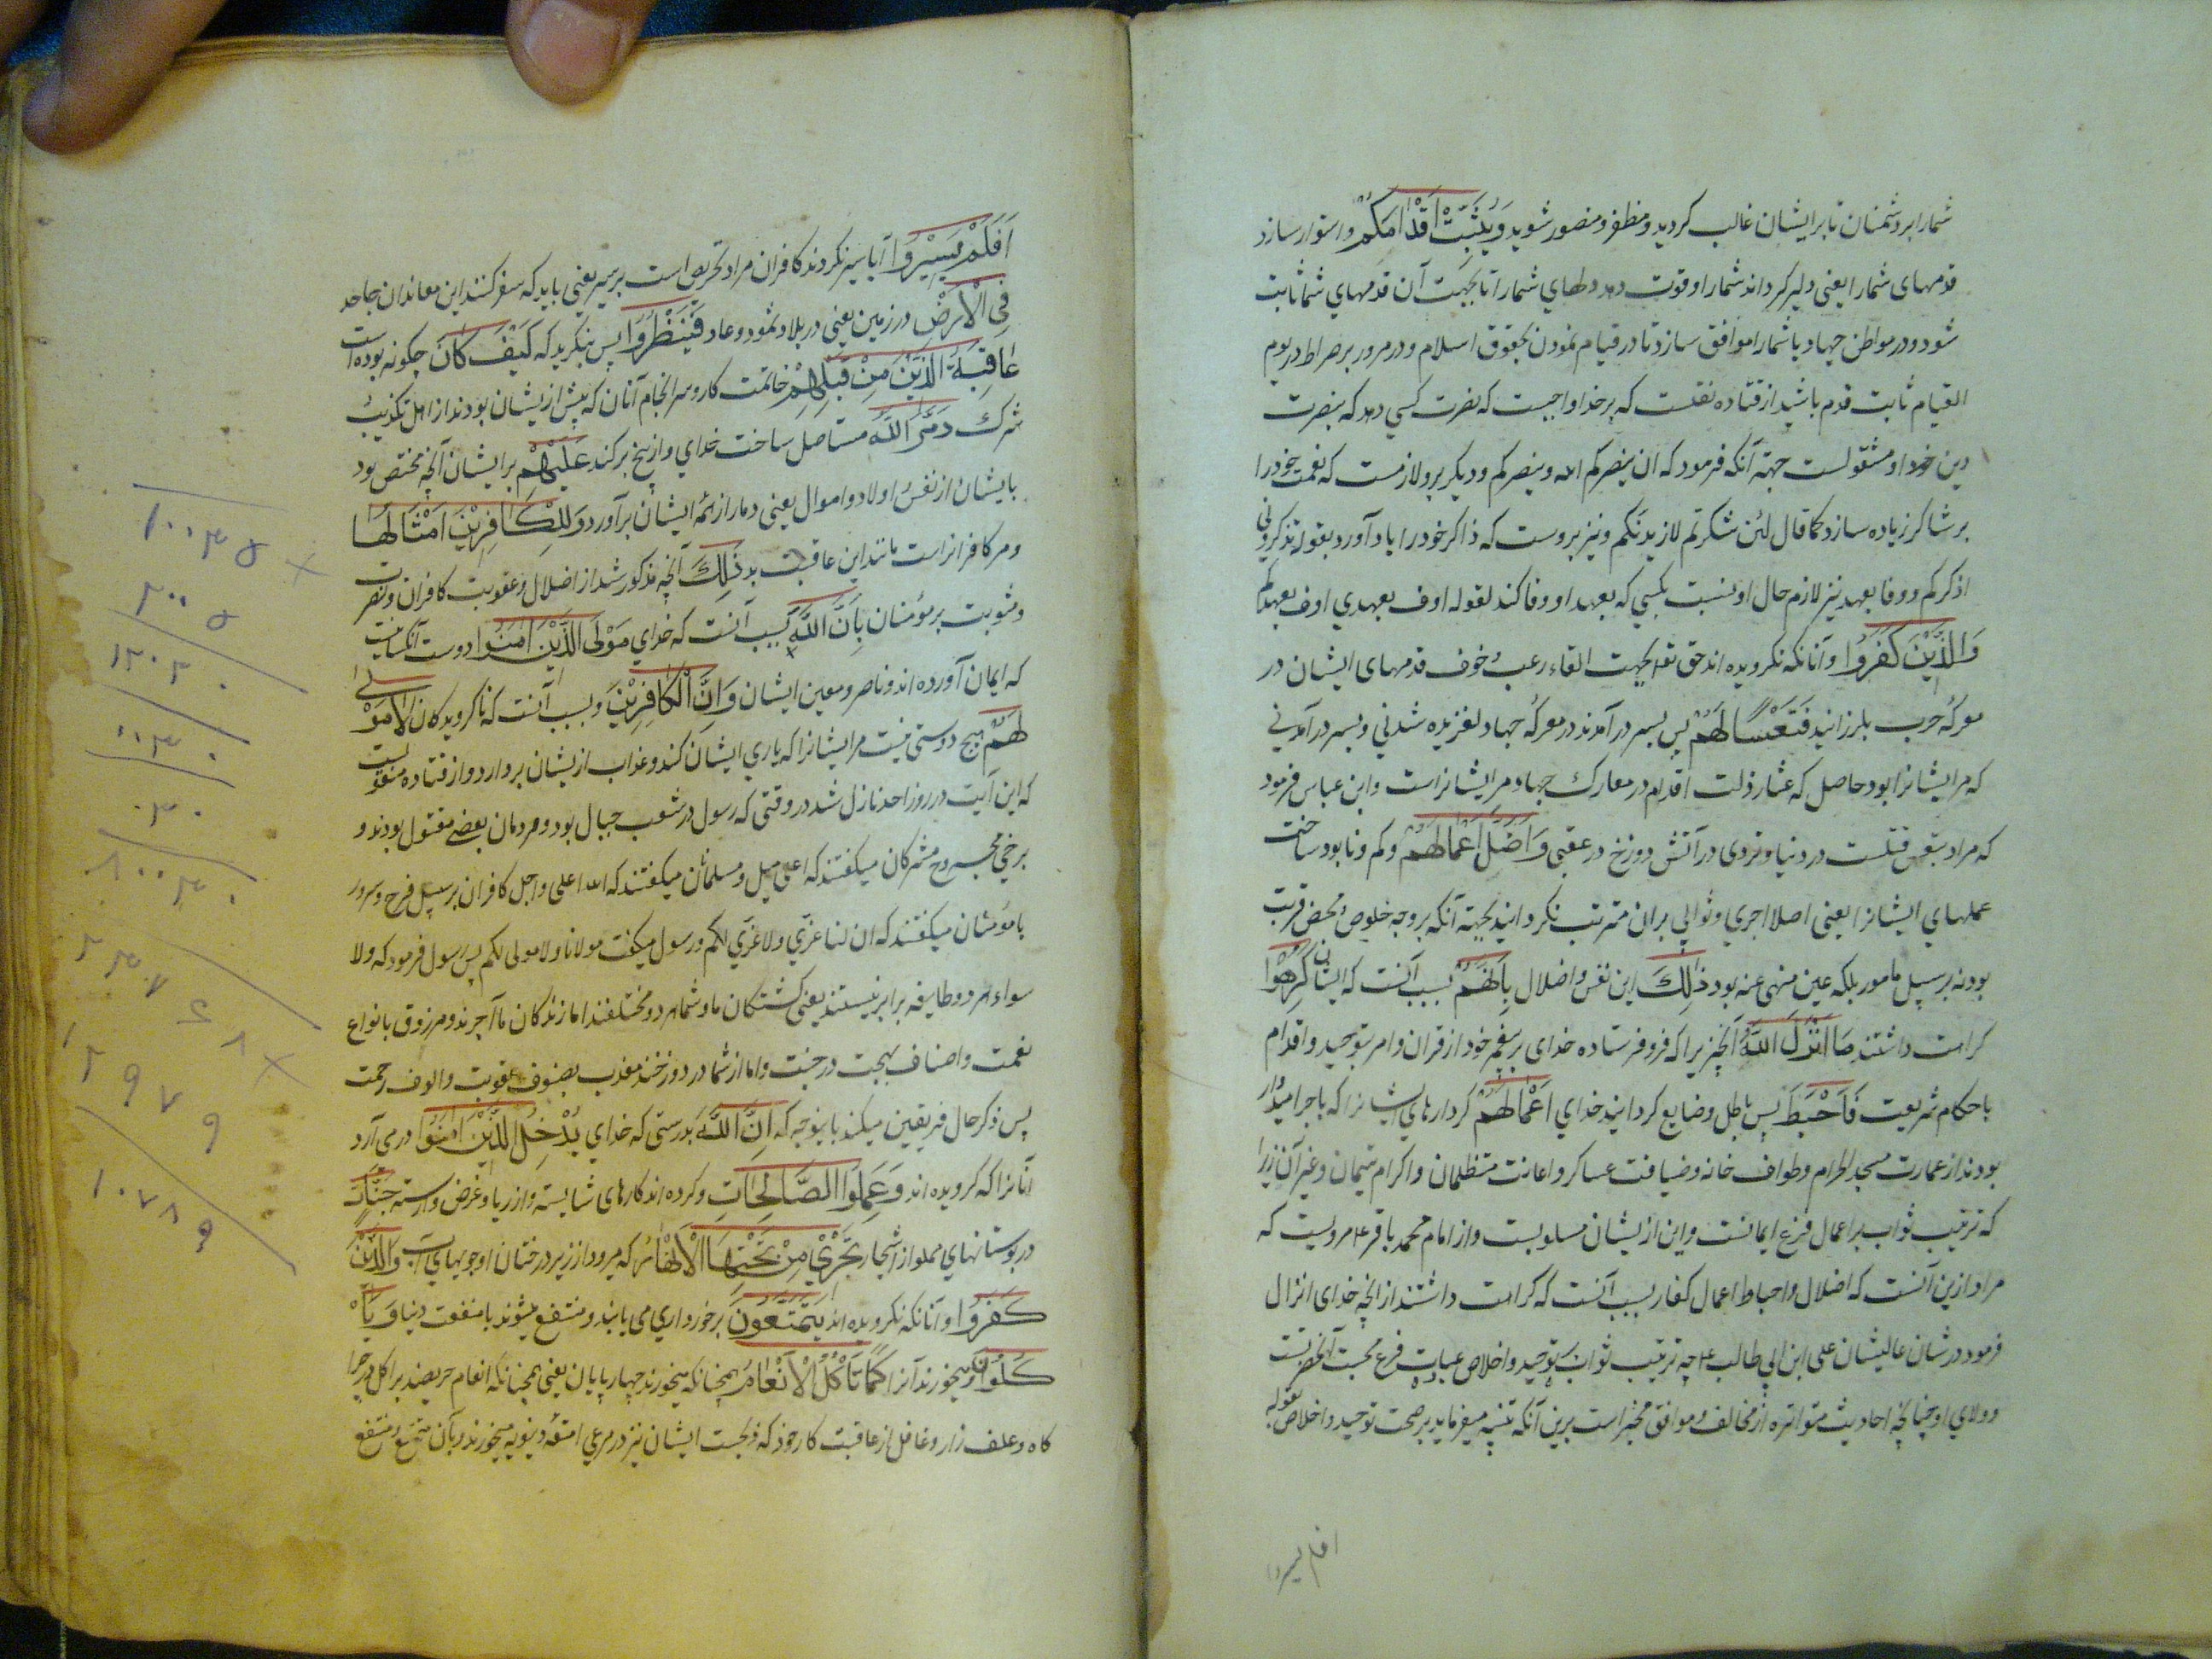 شمارا بر دشمنان تا بر ایشان غالب کردید و مظفر و منصور شوید وَیُثَبِّتْ اَقْدامَکُمْ و استوار سازد
قدمهای شمارا یعنی دلیر کرداند شمارا و قوت دهد دلهاي شمارا تا بجهت آن قدمهاي شما ثابت
شود و در مواطن جهاد یا شمارا موافق سازد تا در قیام نمودن بحقوق اسلام و در مرور بر صراط در یوم
القیام ثابت قدم باشید از قتاده نقلست که بر خدا واجبست که نصرت کسي دهد که بنصرت
دین خدا او مشغولست جهة آنکه فرمود که ان ینصرکم الله و ینصرکم و دیکر برو لازمست که نعمت خود را
بر شاکر زیاده سازد کما قال لئن شکرتم لازیدنکم و نیز بروست که ذاکر خود را یاد آورد بقوله تذکروني
اذکرکم و وفا بعهد نیز لازم حال او نسبت بکسي که بعهد او وفا کند لقوله اوف بعهدي اوف بعهدکم
وَالَّذِیْنَ کَفَرُوْا و آنانکه نکرویده اند حق تع بجهت القاء رعب و خوف قدمهای ایشان در
معرکه حرب بلرزانید فَتَعْسًا لَهُمْ پس بسر در آمدند در معرکه جهاد لغزیده شدني و بسر در آمدني
که مر ایشانرا بود حاصل که عثار ذلت اقدام در معارک جهاد مر ایشانراست و ابن عباس فرمود
که مراد بتعس قتلست در دنیا و تردی در آتش دوزخ در عقبی وَاَضَلَّ اَعْمالَهُمْ و کم و نابود ساخت
عملهاي ایشانرا یعنی اصلا اجري و ثوابي بران مترتب نکردانید بجهة آنکه بر وجه خلوص و محض قربت
بود نه بر سبیل مامور بلکه عین منهی عنه بود ذلِکَ این نفس و اضلال بِاَنَّهُمْ بسبب آنست که ایشان کَرِهُوْا
کراهت داشتند مَا اَنْزَلَ اللّٰهُ آنچیزیرا که فرو فرستاده خدای بر پیغمبر خود از قران و امر بتوحید و اقدام
باحکام شریعت فَاَحْبَطَ پس باطل و ضایع کردانید خداي اَعْمالَهُمْ کردارهاي ایشانرا که باجر امیدوار
بودند از عمارت مسجد الحرام و طواف خانه و ضیافت عساکر و اعانت متظلمان و اکرام یتیمان و غیر آن زیرا
که ترتیب ثواب بر اعمال فرع ایمانست و این از یشان مسلوبست و از امام محمد باقر ع مرویست که
مراد ازین آنست که اضلال و احباط اعمال کفار بسبب آنست که کراهت داشتند از انچه خدای انزال
فرمود در شان عالیشان علی ابن ابي طالب ع چه ترتیب ثواب بتوحید و اخلاص عبادت فرع محبت آنحضرتست
و ولاي او چنانچه احادیث متواتره از مخالف و موافق مخبر است برین آنکه تنبیه میفرماید بر صحت توحید و اخلاص بقوله
افلم یسیروا
اَفَلَمْ یَسِیْرُوْا آیا سیر نکردند کافران مراد تحریص است بر سیر یعني باید که سفر کنند این معاندان جاحد
فِی الْاَرْضِ در زمین یعنی در بلاد ثمود و عاد فَیَنْظُرُوْا پس بنکرید که کَیْفَ کانَ چکونه بوده است
عاقِبَةُ الَّذِیْنَ مِنْ قَبْلِهِمْ خاتمت کار و سر انجام آنان که پیش از یشان بودند از اهل تکذیب
شرک دَمَّرَ اللّٰهُ مستاصل ساخت خداي و از بیخ برکند عَلَیْهِمْ بر ایشان آنچه مختص بود
بایشان از نفس و اولاد و اموال یعنی دمار از همه ایشان بر آورد وَلِلْکافِرِیْنَ اَمْثالُها
و مر کافرانراست مانند این عاقبت بد ذلِکَ آنچه مذکور شد از اضلال و عقوبت کافران و نصرت
و مثوبت بر مؤمنان بِاَنَّ اللّٰهَ بسبب آنست که خداي مَوْلَی الَّذِیْنَ اٰمَنُوْا دوست آنکسانیست
که ایمان آورده اند و ناصر و معین ایشان وَاَنَّ الْکافِرِیْنَ و بسبب آنست که ناکرویدکان لا مَوْلٰی
لَهُمْ هیچ دوستی نیست مر ایشانرا که یاري ایشان کند و عذاب از یشان بردارد و از قتاده منقولست
که این آیت در روز احد نازل شد در وقتی که رسول در شعب جبال بود و مردمان بعضی مقتول بودند و
برخي مجروح مشرکان میکفتند که اعلی هبل و مسلمانان میکفتند که الله اعلی و اجل کافران بر سبیل فرح و سرور
با مؤمنان میکفتند که ان لنا عزّي و لا عزّي لکم و رسول میکفت مولانا و لا مولی لکم پس رسول فرمود که ولا
سواء هر دو طایفه برابر نیستند یعني کشتکان ما و شما هر دو مختلفند اما زندکان ما آجرند و مرزوق بانواع
نعمت و اصناف بهجت در جنت و اما از شما در دوزخند معذب بصنوف عقوبت و الوف زحمت
پس ذکر حال فریقین میکند باینوجه که اِنَّ اللّٰهَ بدرستی که خداي یُدْخِلُ الَّذِیْنَ اٰمَنُوْا در می آرد
آنانرا که کرویده اند وَعَمِلُوا الصّالِحاتِ و کرده اند کارهای شایسته و از ریا و غرض وارسته جَنّاتٍ
در بوستانهاي مملو از اشجار تَجْرِيْ مِنْ تَحْتِهَا الْاَنْهارُ که میرود از زیر درختان او جویهاي آب وَالَّذِیْنَ
کَفَرُوْا و آنانکه نکرویده اند یَتَمَتَّعُوْنَ برخورداري می یابند و منتفع میشوند با منفعت دنیا وَیَاْ
کُلُوْنَ و میخورند آنرا کَما تَاْکُلُ الْاَنْعامُ همچنانکه میخورند چهارپایان یعنی همچنانکه انعام حریصند بر اکل در چرا
کاه و علف زار و غافل از عاقبت کار خود که ذبحست ایشان نیز در مرعي امتعه دنیویه میخورند و بآن متمتع و منتفع